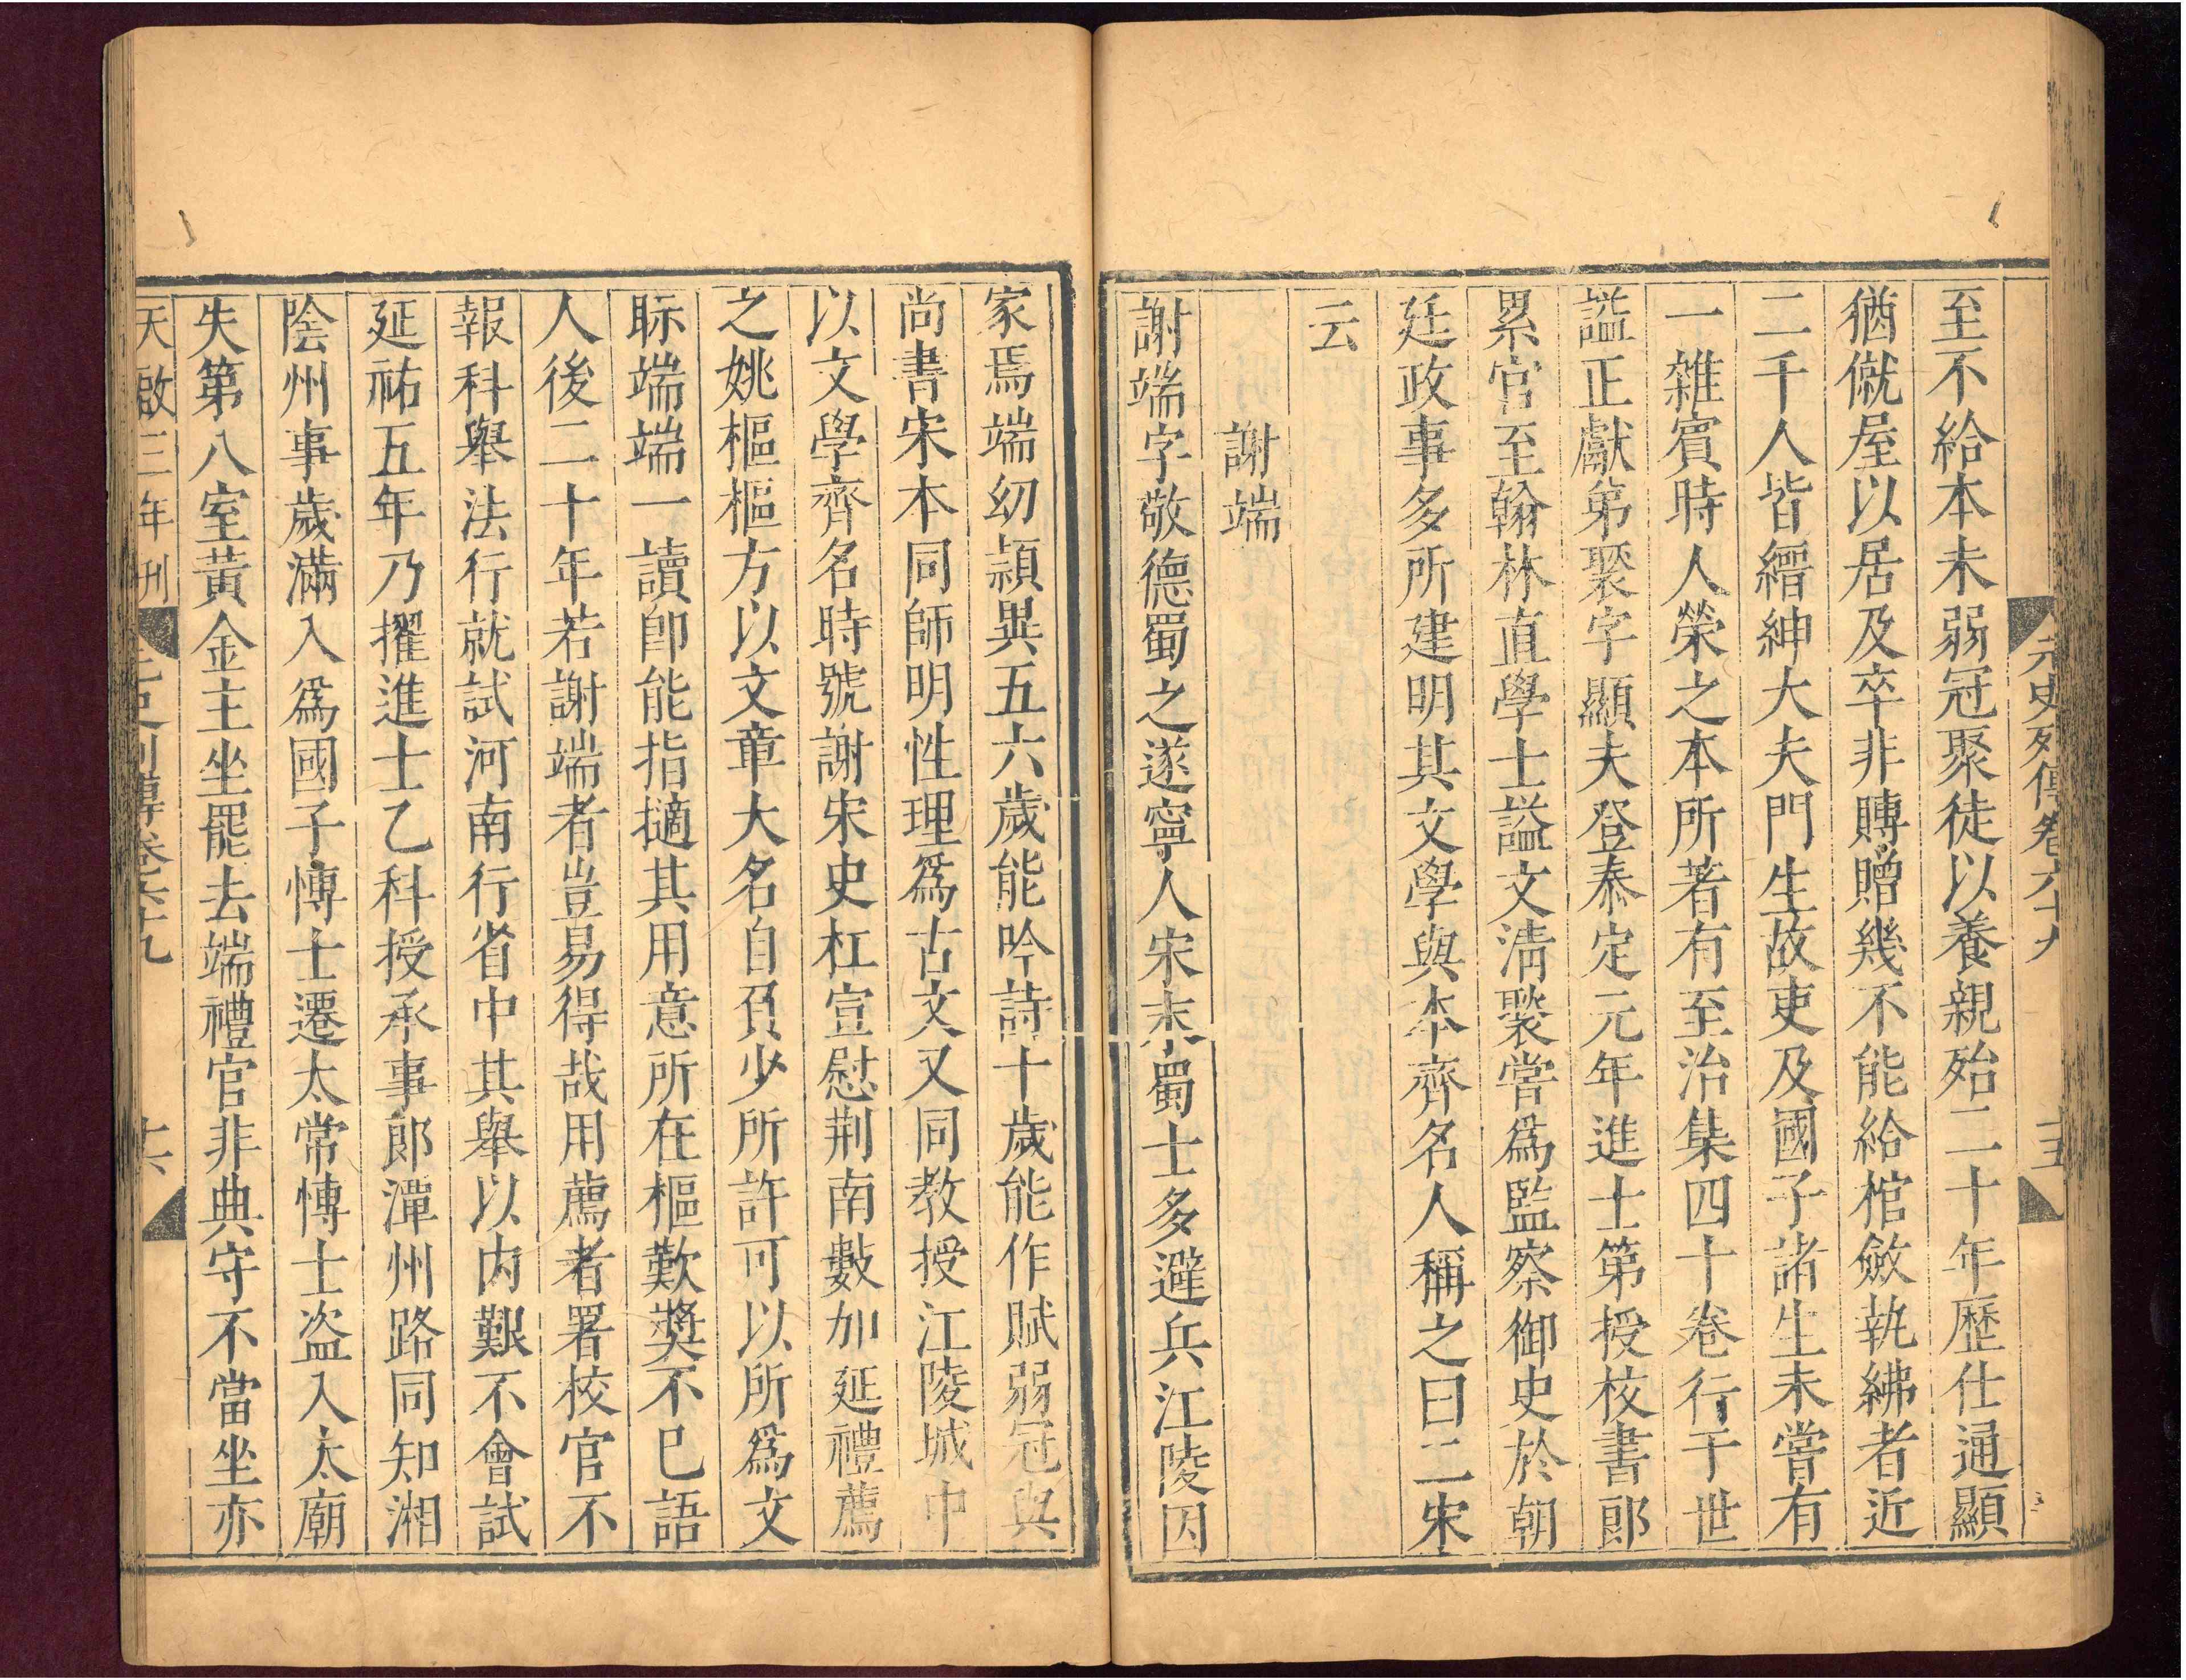 元史列傳卷六十九
十五
至不給本未弱冠聚徒以養親殆二十年歷仕通顯
猶僦屋以居及卒非賻贈幾不能給棺斂執紼者近
二千人皆縉紳大夫門生故吏及國子諸生未嘗有
一雜賓時人榮之本所著有至治集四十卷行于世
謚正獻弟褧字顯夫登泰定元年進士第授校書郎
累官至翰林直學士謚文清褧嘗爲監察御史於朝
廷政事多所建明其文學與本齊名人稱之曰二宋
云
謝端
謝端字敬德蜀之遂寧人宋末蜀士多避兵江陵因
家焉端幼頴異五六歲能吟詩十歲能作賦弱冠與
尚書宋本同師明性理爲古文又同教授江陵城中
以文學齊名時號謝宋史杠宣慰荆南數加延禮薦
之姚樞樞方以文章大名自負少所許可以所爲文
眎端端一讀卽能指擿其用意所在樞歎奬不巳語
人後二十年若謝端者豈易得哉用薦者署校官不
報科舉法行就試河南行省中其舉以内艱不會試
延祐五年乃擢進士乙科授承事郎潭州路同知湘
陰州事歲滿入爲國子博士遷太常博士盗入太廟
失第八室黃金主坐罷去端禮官非典守不當坐亦
天啟三年刊
元史列傳卷六十九
十六